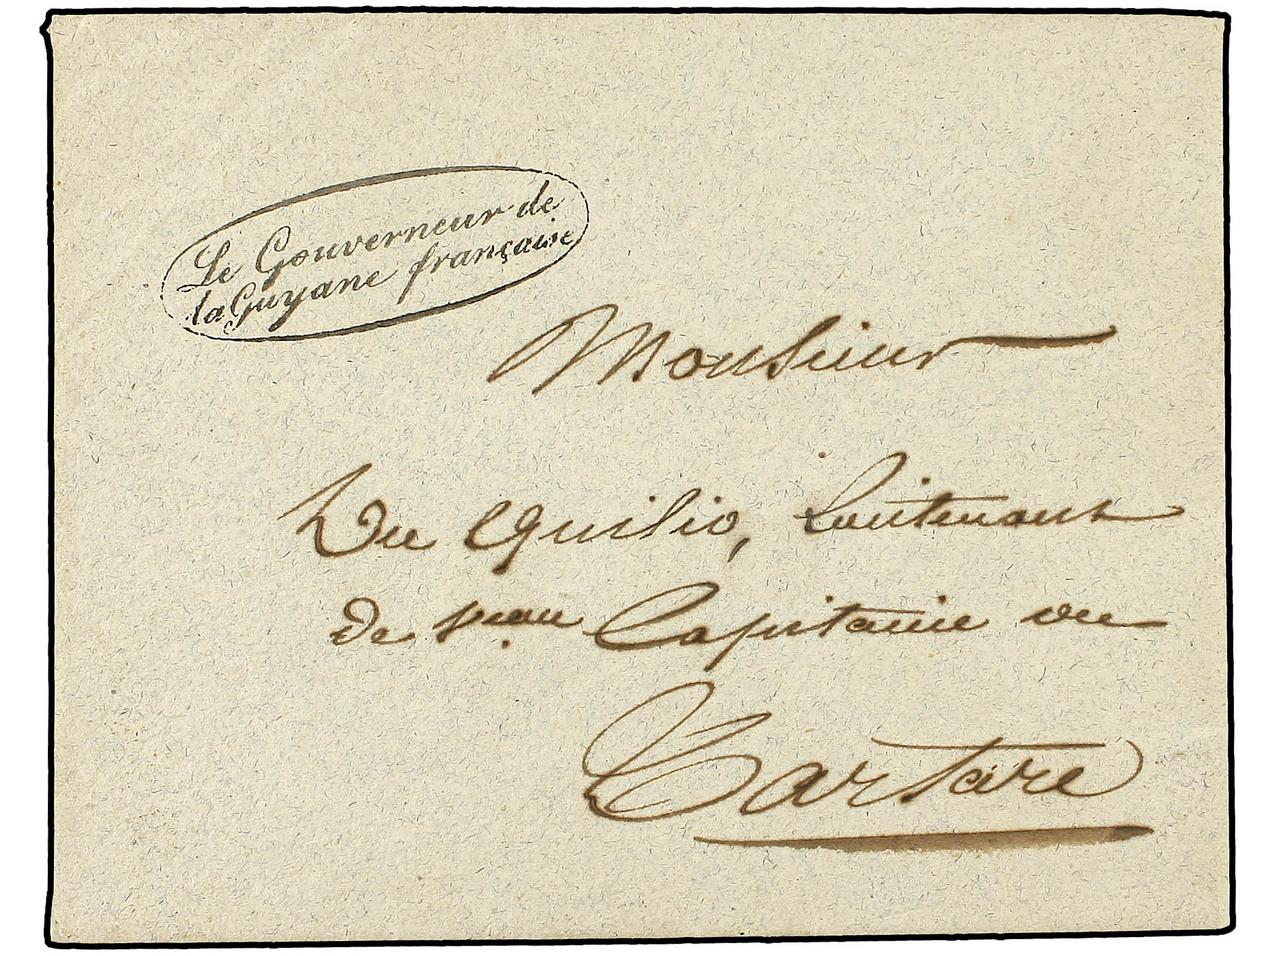 Le Gouverneur de
la Guyane française
Monsieur
Du Quilio, Lieutenant
de Veau Capitaine du
Tartare